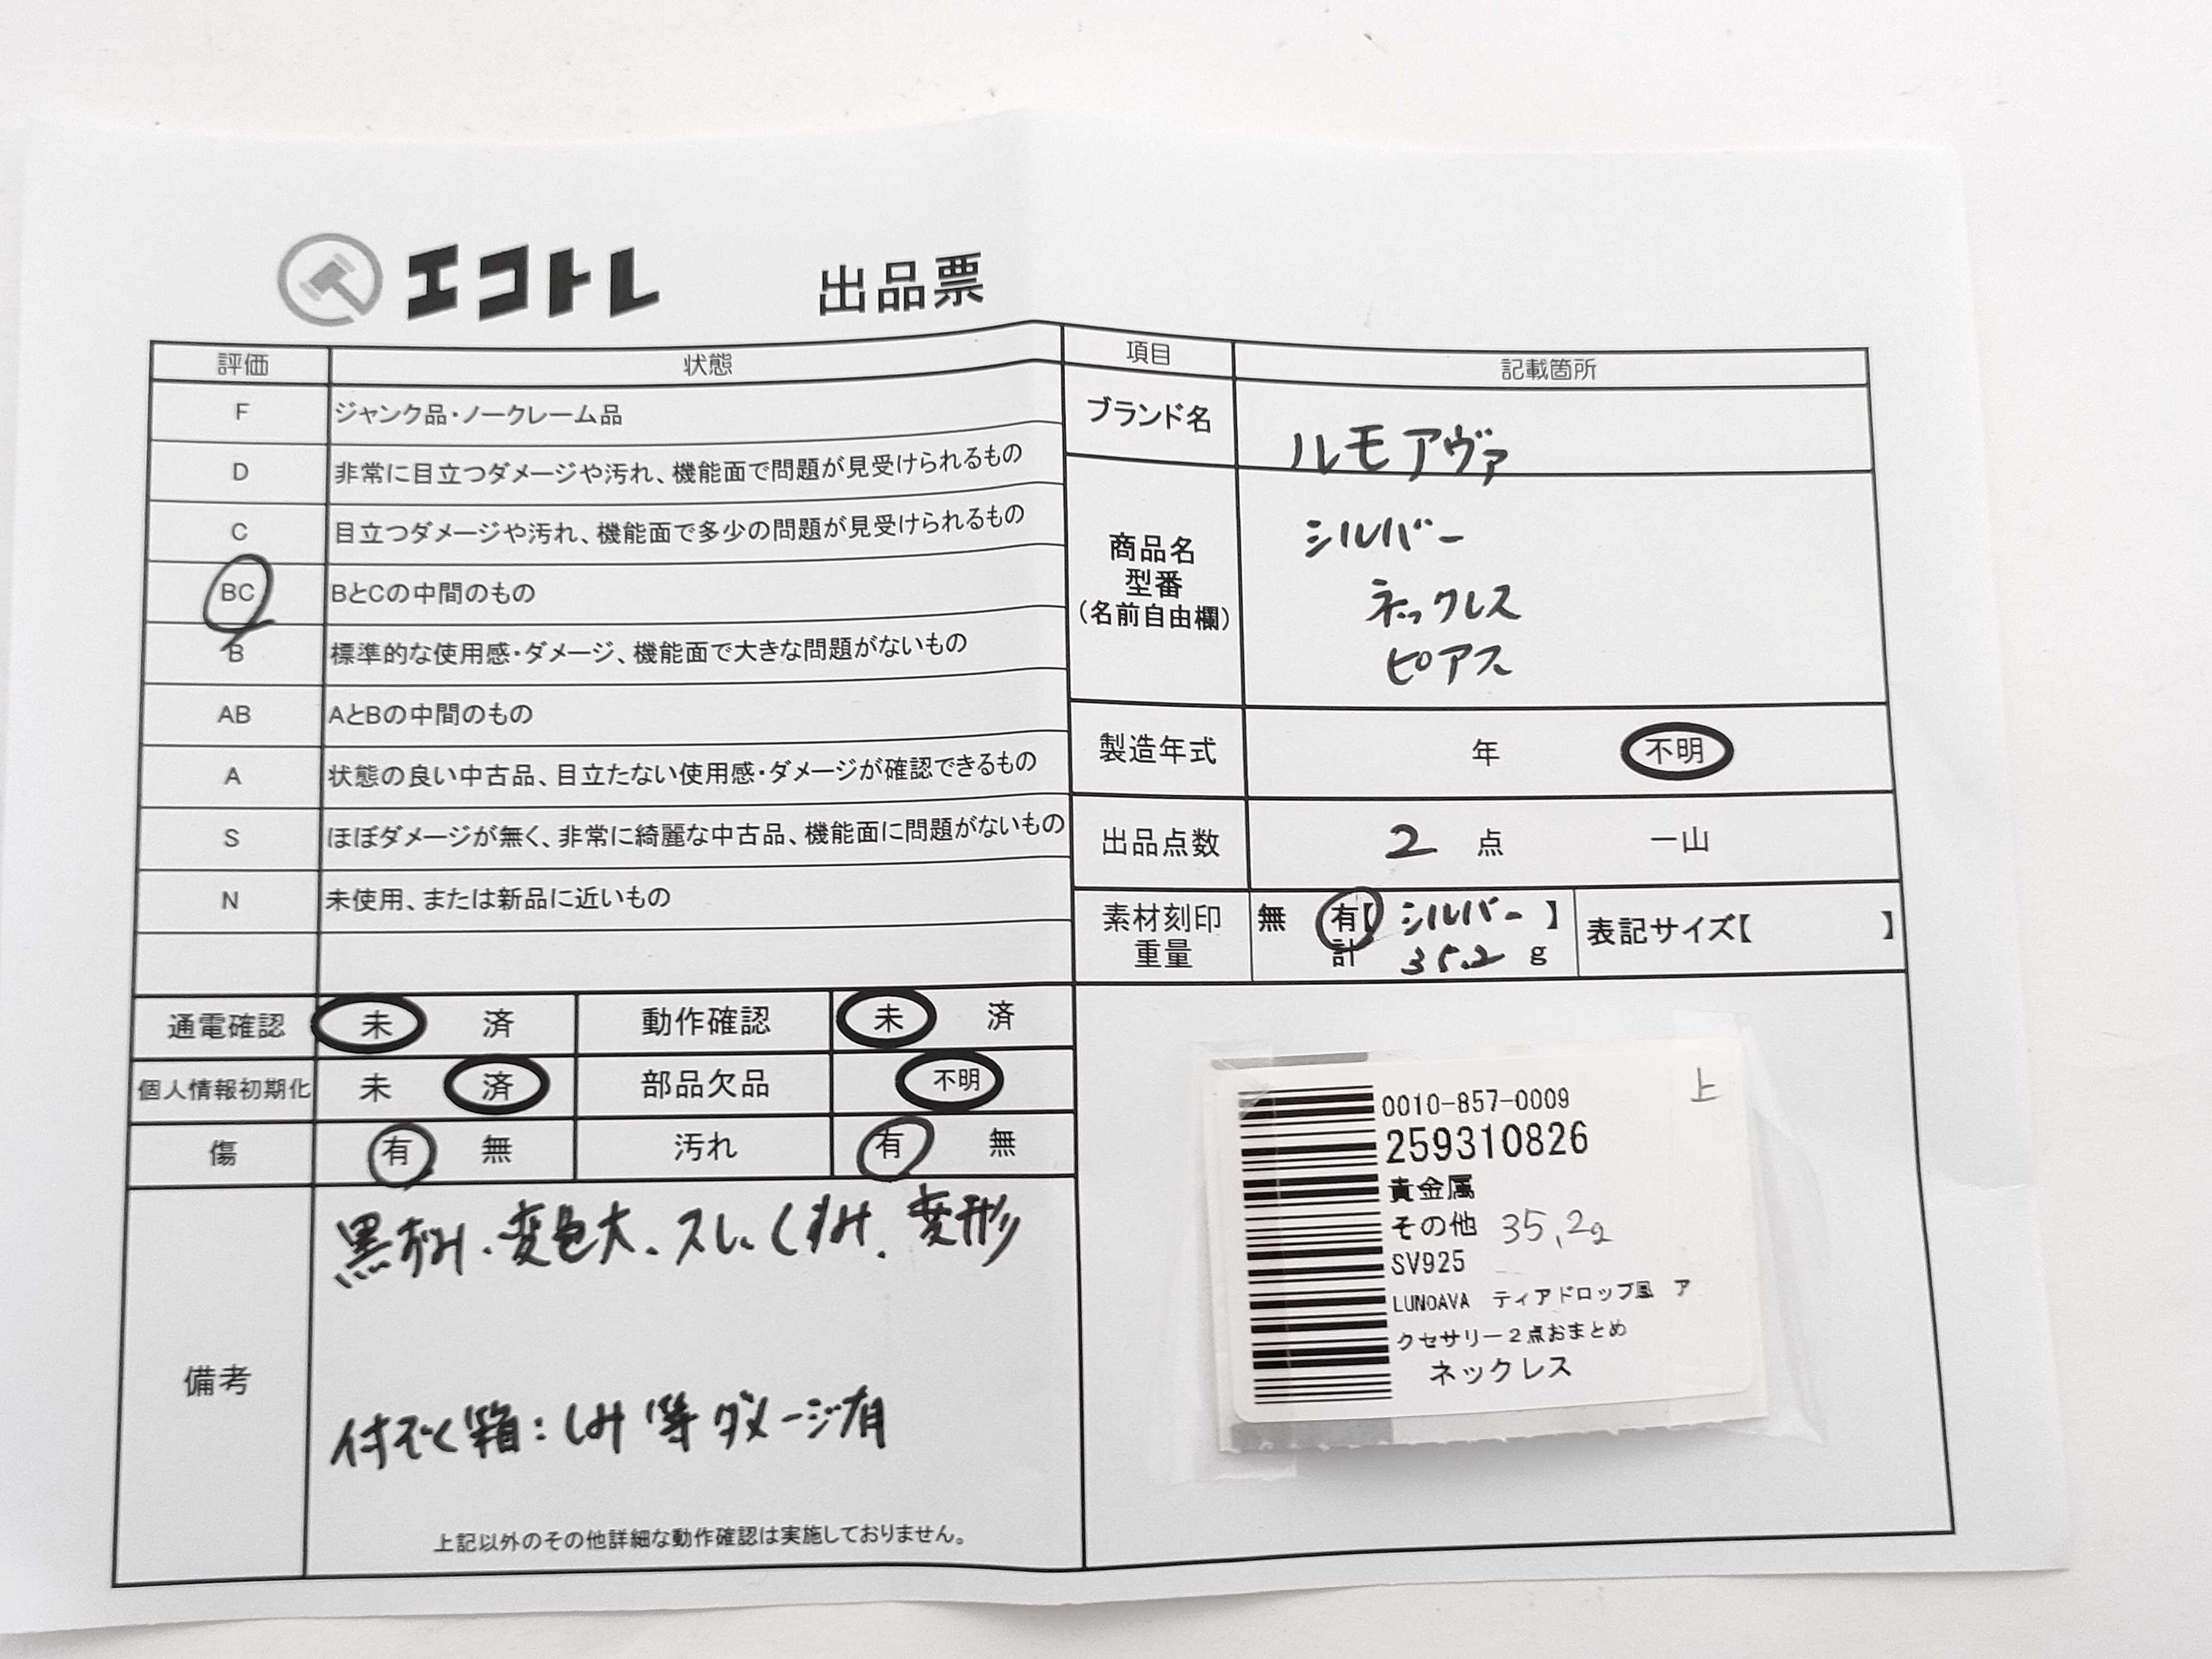 エコトレ 出品票
評価 状態
F ジャンク品・ノークレーム品
D 非常に目立つダメージや汚れ、機能面で問題が見受けられるもの
C 目立つダメージや汚れ、機能面で多少の問題が見受けられるもの
BC BとCの中間のもの
B 標準的な使用感・ダメージ、機能面で大きな問題がないもの
AB AとBの中間のもの
A 状態の良い中古品、目立たない使用感・ダメージが確認できるもの
S ほぼダメージが無く、非常に綺麗な中古品、機能面に問題がないもの
N 未使用、または新品に近いもの
通電確認 未 済 動作確認 未 済
個人情報初期化 未 済 部品欠品 不明
傷 有 無 汚れ 有 無
備考
黒ずみ、変色大、スレ、くすみ、変形
付ぞく箱:しみ等ダメージ有
上記以外のその他詳細な動作確認は実施しておりません。
項目 記載箇所
ブランド名 ルモアヴァ
商品名
型番
(名前自由欄)
シルバー
ネックレス
ピアス
製造年式 年 不明
出品点数 2 点 一山
素材刻印 無 有【シルバー】
重量 計 35.2 g
表記サイズ【 】
上
0010-857-0009
259310826
貴金属
その他 35,2g
SV925
LUNOAVA ティアドロップ風 ア
クセサリー2点おまとめ
ネックレス